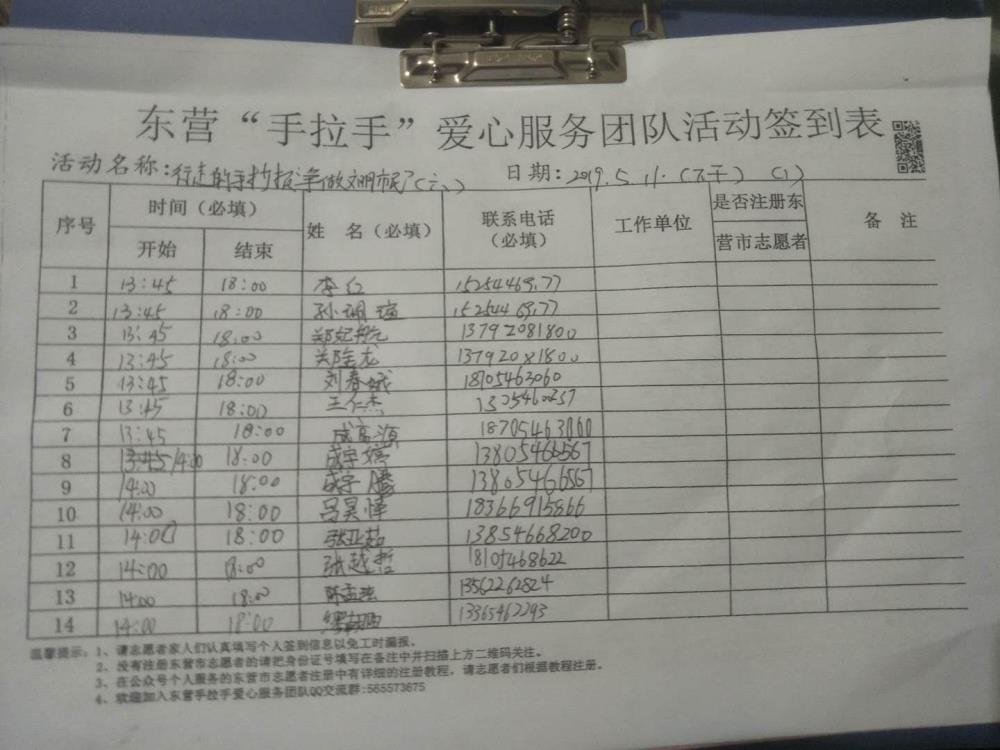 东营“手拉手”爱心服务团队活动签到表
活动名称:行走的手抄报 争做文明市民(六) 日期:2019.5.11.(下午) (1)
序号 时间(必填) 姓 名(必填) 联系电话(必填) 工作单位 是否注册东营市志愿者 备 注
开始 结束
1 13:45 18:00 李红 15254469177
2 13:45 18:00 孙 15254469177
3 13:45 18:00 郑纪航 13792081800
4 13:45 18:00 13792081800
5 13:45 18:00 刘春娥 18705463060
6 13:45 18:00 王仁杰
7 13:45 18:00 成富源 18705463060
8 14:00 18:00 成宇婷 13805466567
9 14:00 18:00 成宇腾 13805466567
10 14:00 18:00 吕昊泽 18366915866
11 14:00 18:00 张亚茹 13854668200
12 14:00 18:00 张越哲 18105468622
13 14:00 18:00 13562262824
14 14:00 18:00 13365462293
温馨提示:1、请志愿者家人们认真填写个人签到信息以免工时漏报。
2、没有注册东营市志愿者的请把身份证号填写在备注中并扫描上方二维码关注。
3、在公众号个人服务的东营市志愿者注册中有详细的注册教程,请志愿者们根据教程注册。
4、欢迎加入东营手拉手爱心服务团队QQ交流群:565573675